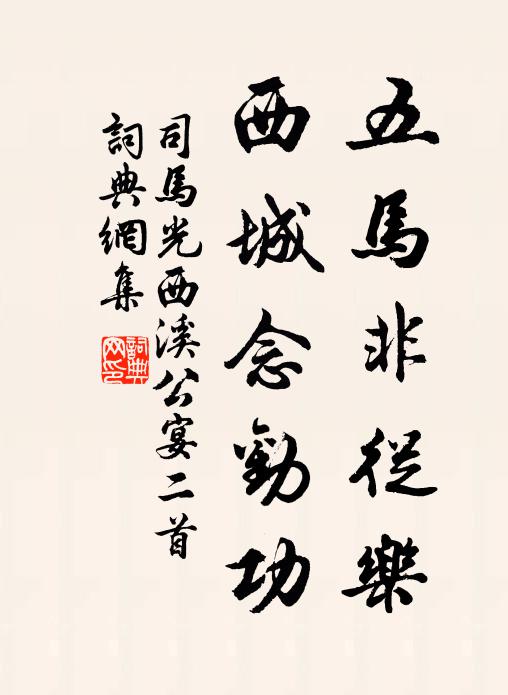 五馬非從樂
西城念勤功
司馬光西溪公宴二首
詞典網集
詞典
网印